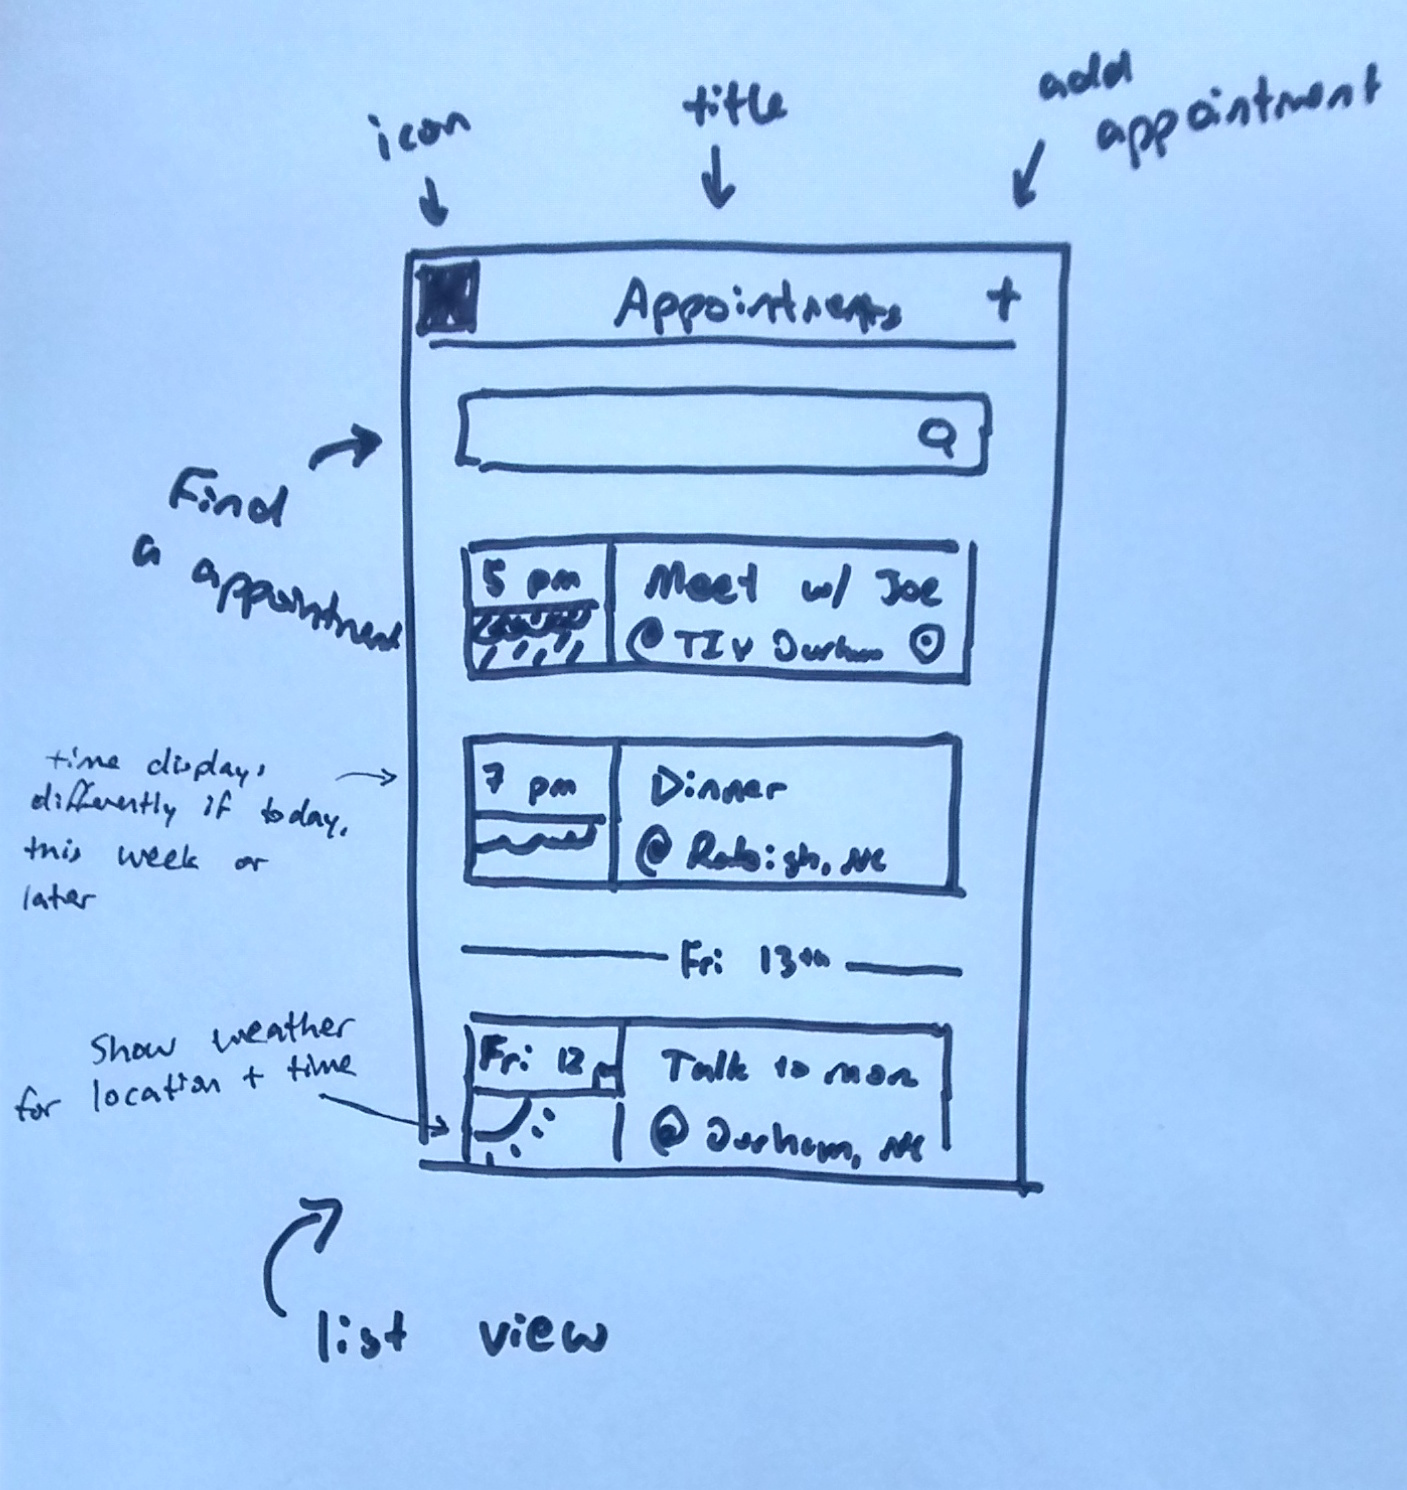 icon
title
add
appointment
Appointments +
Find
a appointment
5 pm
Meet w/ Joe
@ Durham
time displays
differently if today,
this week or
later
7 pm
Dinner
@ Raleigh, NC
Fri 13th
Show weather
for location + time
Fri 12
Talk to mom
@ Durham, NC
list view